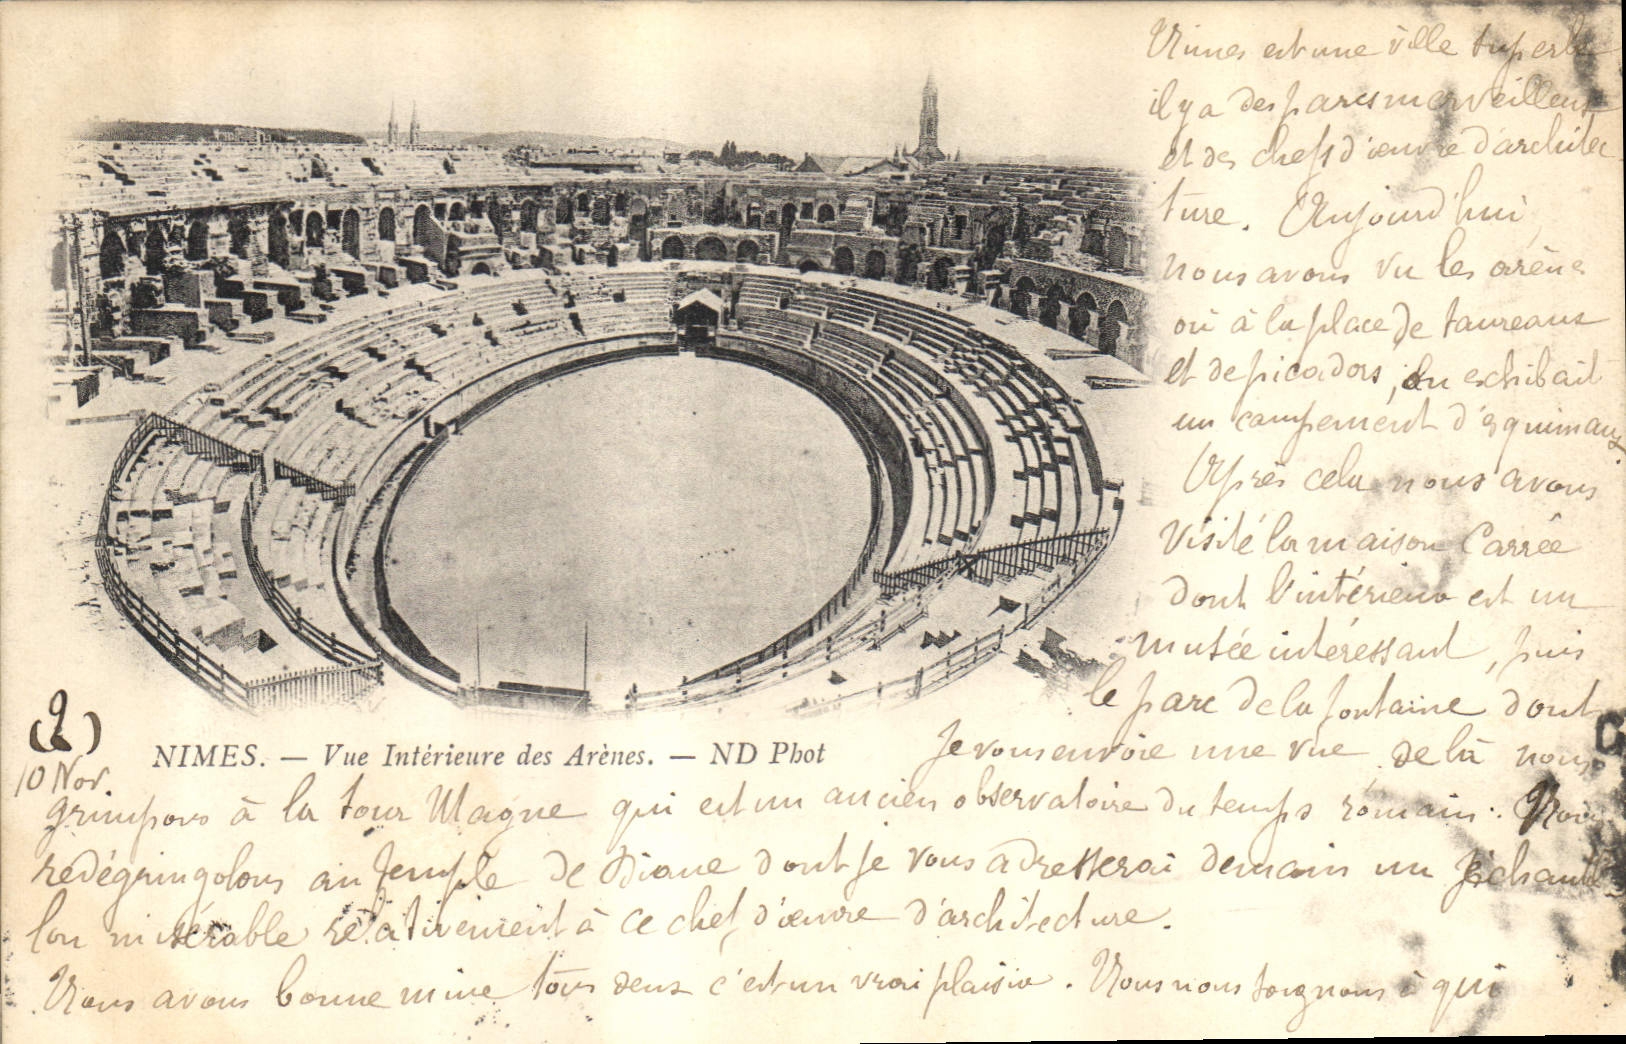 Nimes est une ville superbe
il y a des parcs merveilleux
et des chefs d'œuvre d'architec
ture. Aujourd'hui
nous avons vu les arènes
où à la place de taureaux
et de picadors, on exhibait
un campement d'esquimaux.
Après cela nous avons
visité la maison Carrée
dont l'intérieur est un
musée intéressant, puis
le parc de la fontaine dont
Je vous envoie une vue de là nous
grimpons à la tour Magne qui est un ancien observatoire du temps romain. Nous
redégringolons au Temple de Diane dont je vous adresserai demain un échantil
lon misérable relativement à ce chef d'œuvre d'architecture.
Nous avons bonne mine tous deux c'est un vrai plaisir. Nous nous soignons à qui
(2)
10 Nov.
NIMES. — Vue Intérieure des Arènes. — ND Phot